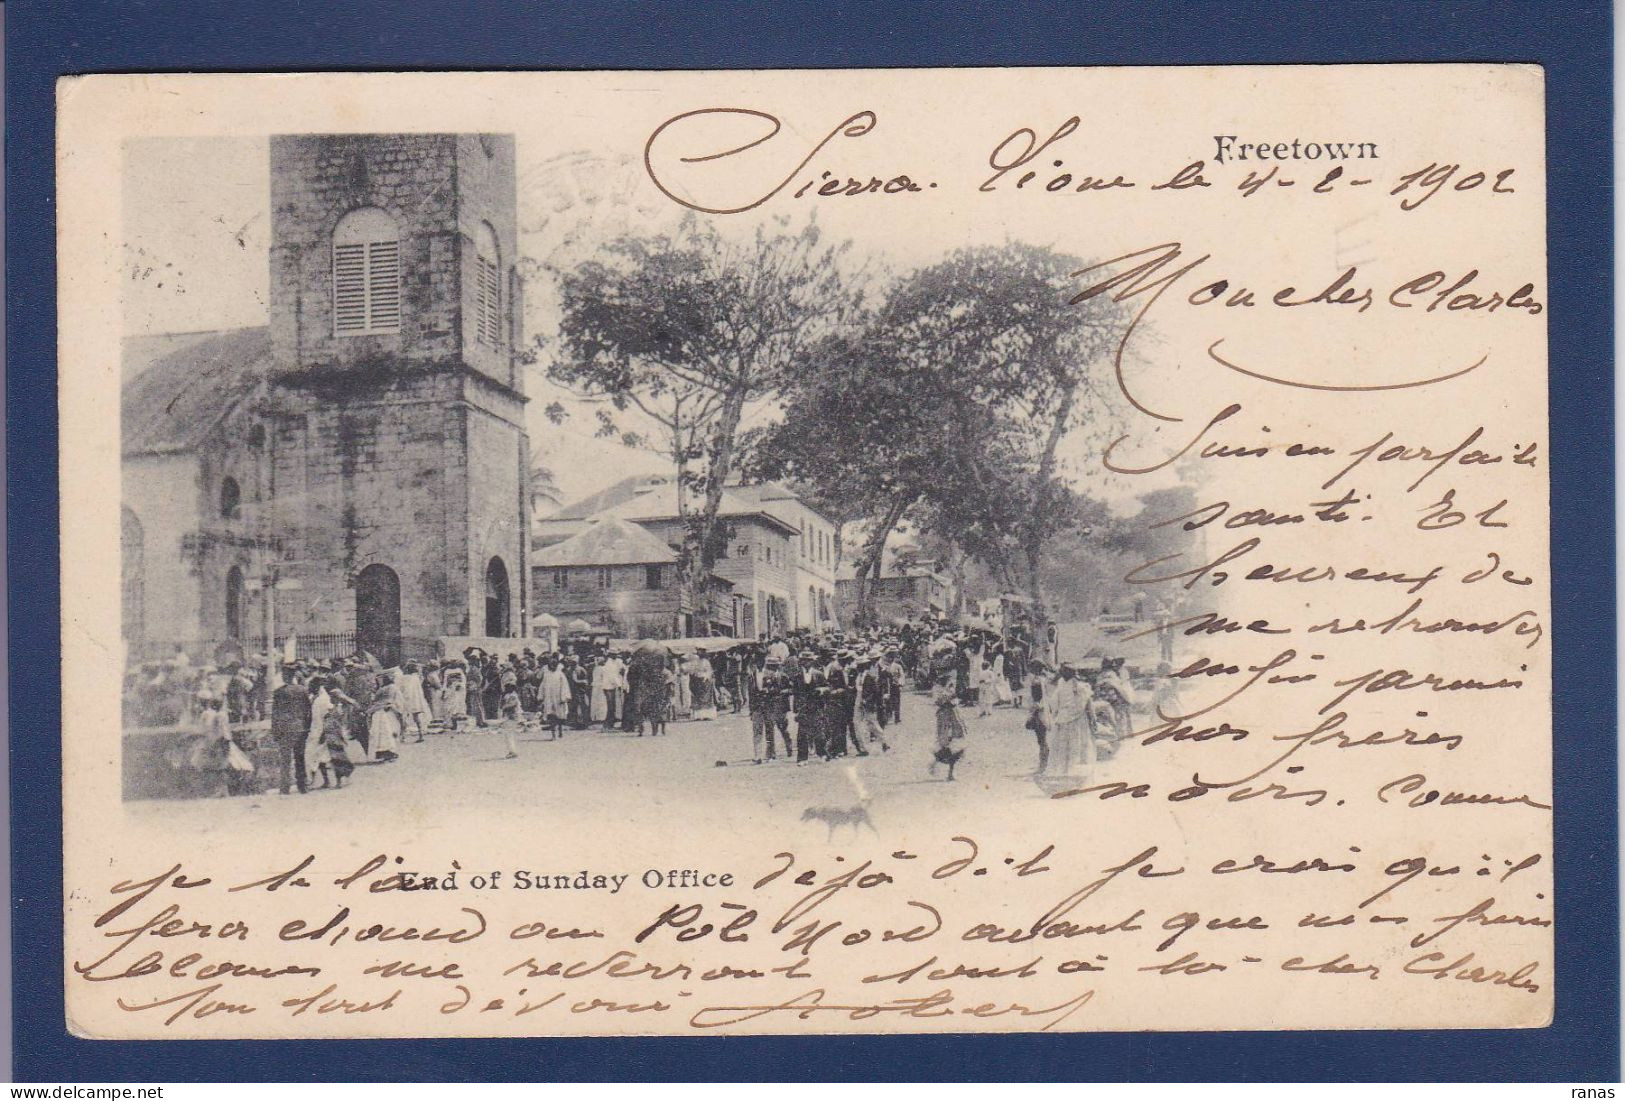 Freetown
Sierra. Lione le 4-2-1902
Mon cher Charles
Suis en parfaite
santé. Et
heureux de
me retrouver
enfin parmi
nos frères
noirs. Comme
je te l'ai déjà dit je crois qu'il
End of Sunday Office
fera chaud au Pôle Nord avant que mes frères
blancs me reverront tout à toi cher Charles
Ton tout dévoué
ranas